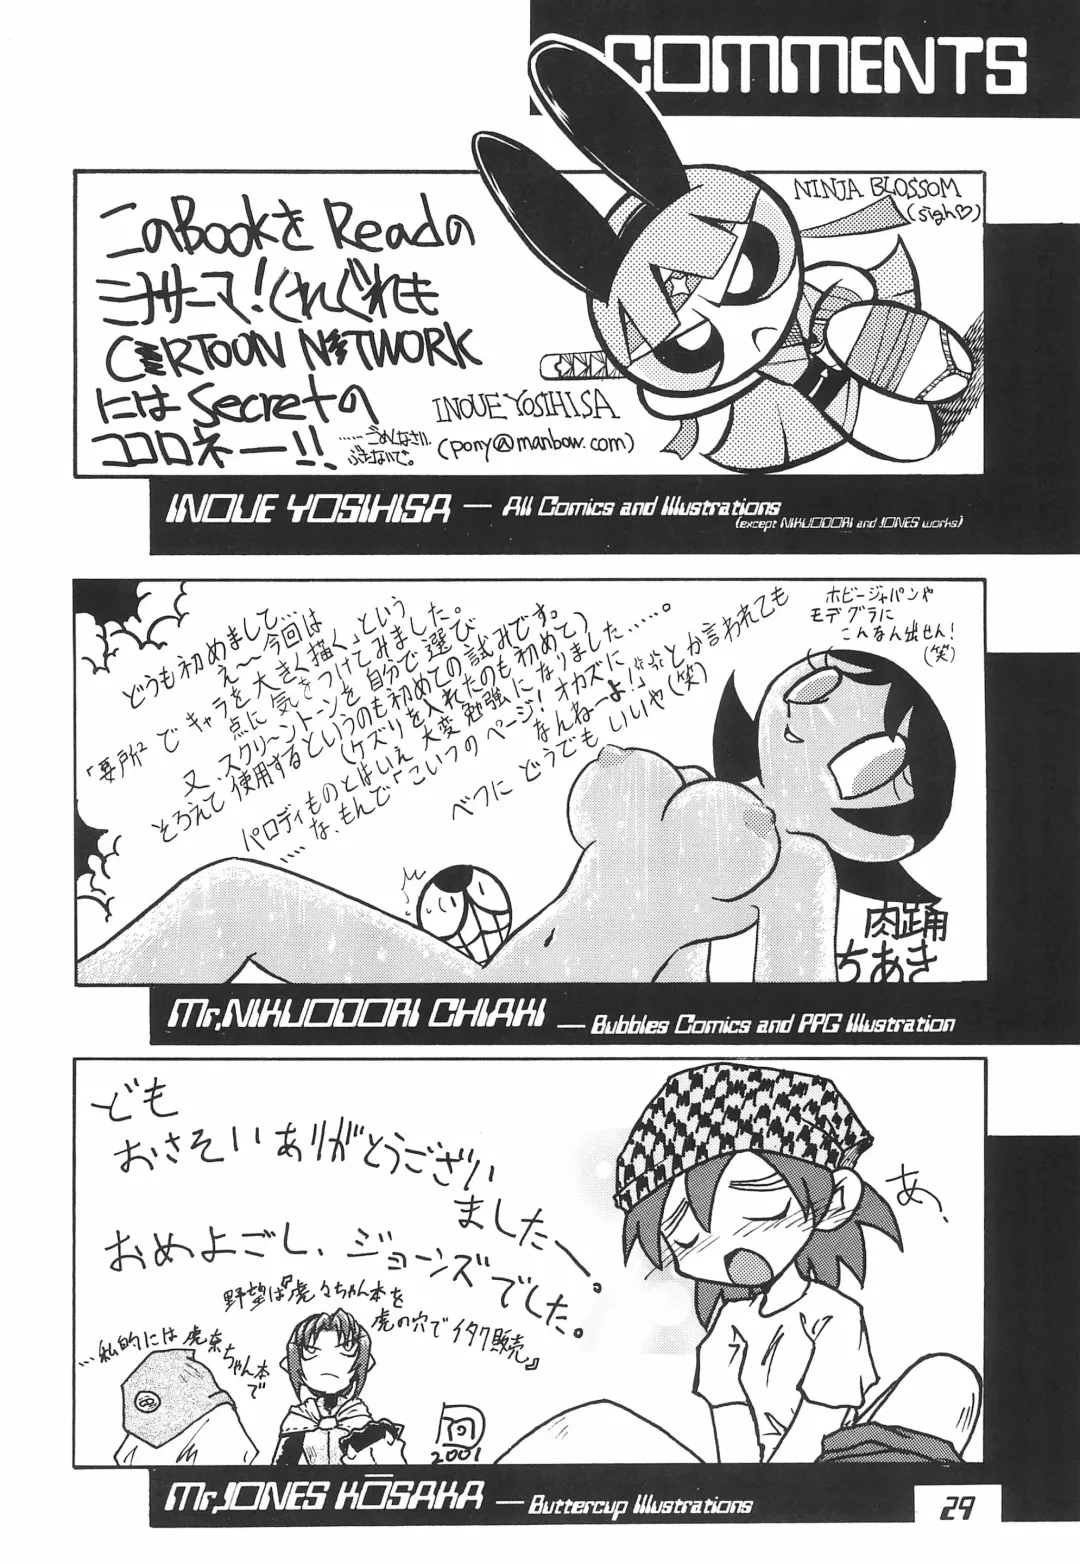 COMMENTS
このBookを Readの
ミナサーマ!くれぐれも
CERTOON NETWORK
には Secretの
ココロネー!!
……ごめんなさい。
ぶたないで。
NINJA BLOSSOM
(sigh♡)
INOUE YOSIHISA
(pony@manbow.com)
INOUE YOSIHISA — All Comics and Illustrations
(except NIKUODORI and JONES works)
どうも初めまして、
え〜今回は
「要所でキャラを大きく描く」という
点に気をつけてみました。
又、スクリーントーンを自分で選び
そろえて使用するというのも初めての試みです。
(ケズリを入れたのも初めて)
パロディものとはいえ大変勉強になりました……。
…な、もんで「こいつのページ!オカズに
なんねーよ!」とか言われても
べつに どうでもいいや(笑)
ホビージャパンや
モデグラに
こんなん出せん!
(笑)
肉踊
ちあき
Mr.NIKUODORI CHIAKI — Bubbles Comics and PPG Illustration
ども
おさそいありがとうござい
ましたー。
おめよごし、ジョーンズでした。
野望は『虎々ちゃん本を
虎の穴でイタク販売』
…私的には虎奈ちゃん本
で
あ、
2001
Mr.JONES KŌSAKA — Buttercup Illustrations
29